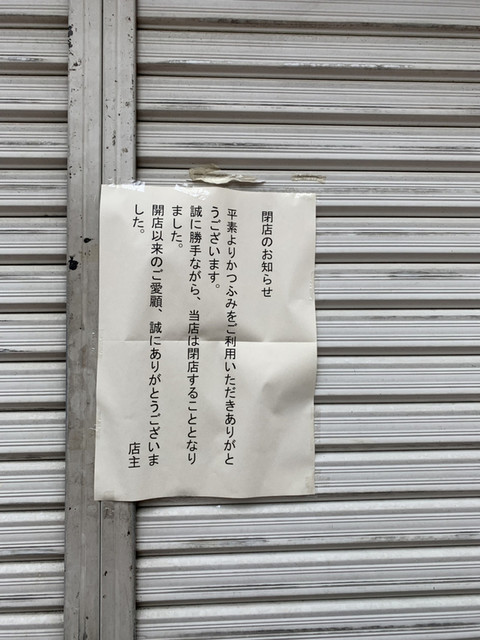 閉店のお知らせ
平素よりかつふみをご利用いただきありがと
うございます。
誠に勝手ながら、当店は閉店することとなり
ました。
開店以来のご愛顧、誠にありがとうございま
した。
店主